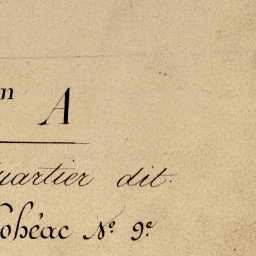 n A
uartier dit.
ohéac N.° 9.e